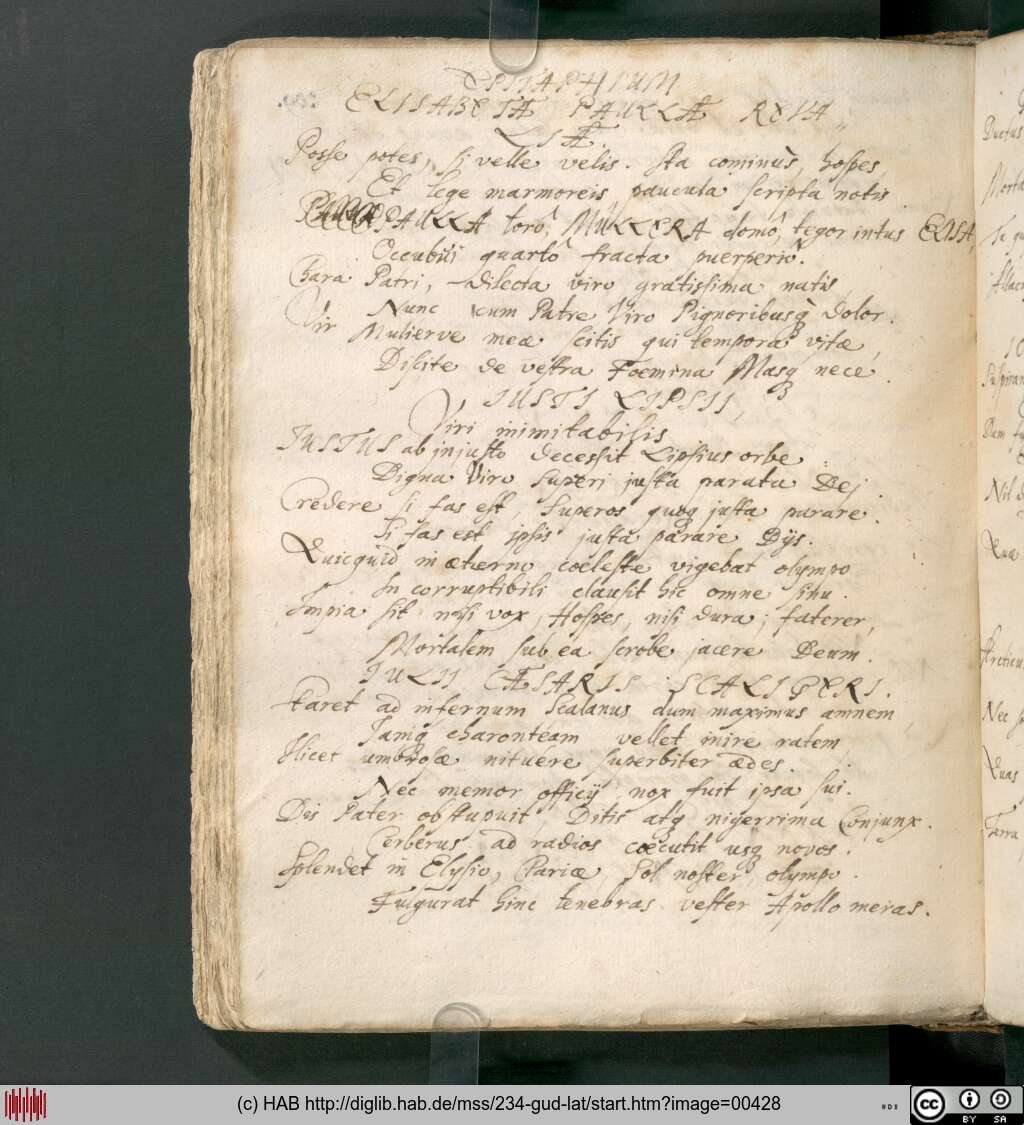 EPITAPHIUM
ELISABETÆ PAULLÆ REVIA
LIÆ
Posse potes, si velle velis. sta cominùs hospes,
Et lege marmoreis paucula scripta notis
PAULLA torô, MÜLLERA domô, tegor intus ELISA,
Occubui quartô fracta puerperiô.
Chara Patri, dilecta viro gratissima natis,
Nunc cum Patre Viro Pignoribusq̀ dolor.
Vir Mulierve meæ scitis qui tempora vitæ,
Discite de vestra Foemina Masq nece.
IUSTI LIPSII,
Viri inimitabilis
IUSTUS ab injusto decessit Lipsius orbe:
Digna Viro Superi justa parata Dej.
Credere si fas est, Superos quoq justa parare.
Si fas est ipsis justa parare Dijs.
Quicquid in æterno coeleste vigebat olympo
In corruptibili clausit hic omne sinu.
Impia sit nisi vox, Hospes, nisi dura; faterer,
Mortalem sub ea scrobe jacere Deum.
IULII CÆSARIS SCALIGERI.
staret ad infernum Scalanus dum maximus amnem,
Iamq charonteam vellet inire ratem,
Ilicet umbrosæ nituere superbiter ædes.
Nec memor officij nox fuit ipsa sui.
Dis Pater obstupuit Ditis atq nigerrima Conjunx.
Cerberus ad radios coecutit usq novos.
Splendet in Elysio, Pariæ, Sol noster, olympo.
Fugurat hinc tenebras vester Apollo meras.
(c) HAB http://diglib.hab.de/mss/234-gud-lat/start.htm?image=00428
WDB
cc BY SA